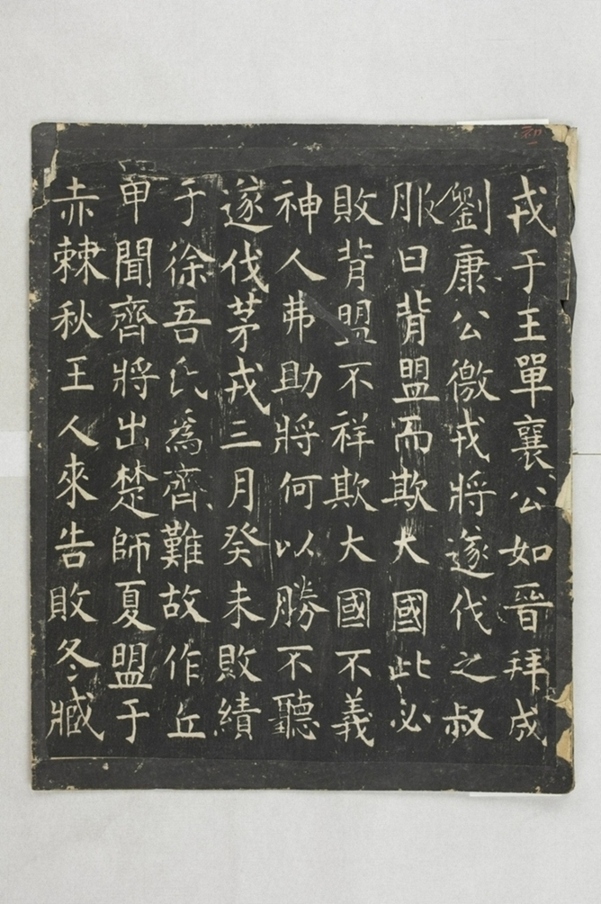 戎于王單襄公如晉拜成
劉康公徼戎將遂伐之叔
服曰背盟而欺大國此必
敗背盟不祥欺大國不義
神人弗助將何以勝不聽
遂伐茅戎三月癸未敗績
于徐吾氏為齊難故作丘
甲聞齊將出楚師夏盟于
赤棘秋王人來告敗冬臧